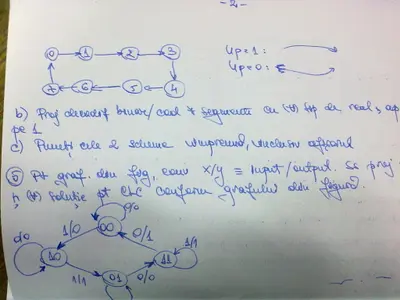 -2-
0 1 2 3
Up=1:
Up=0:
7 6 5 4
b) Proj decodif binar/cod 7 segmente cu
pe 1
c) Puneți cele 2 scheme împreună, inclusiv afișorul
5 Pt graf. din fig, conv x/y ≡ input/output. Se proj
soluție pt CLC conform grafului din figură.
0/0
00
1/0 0/1
0/0 1/1
10 11
01
1/1 0/0